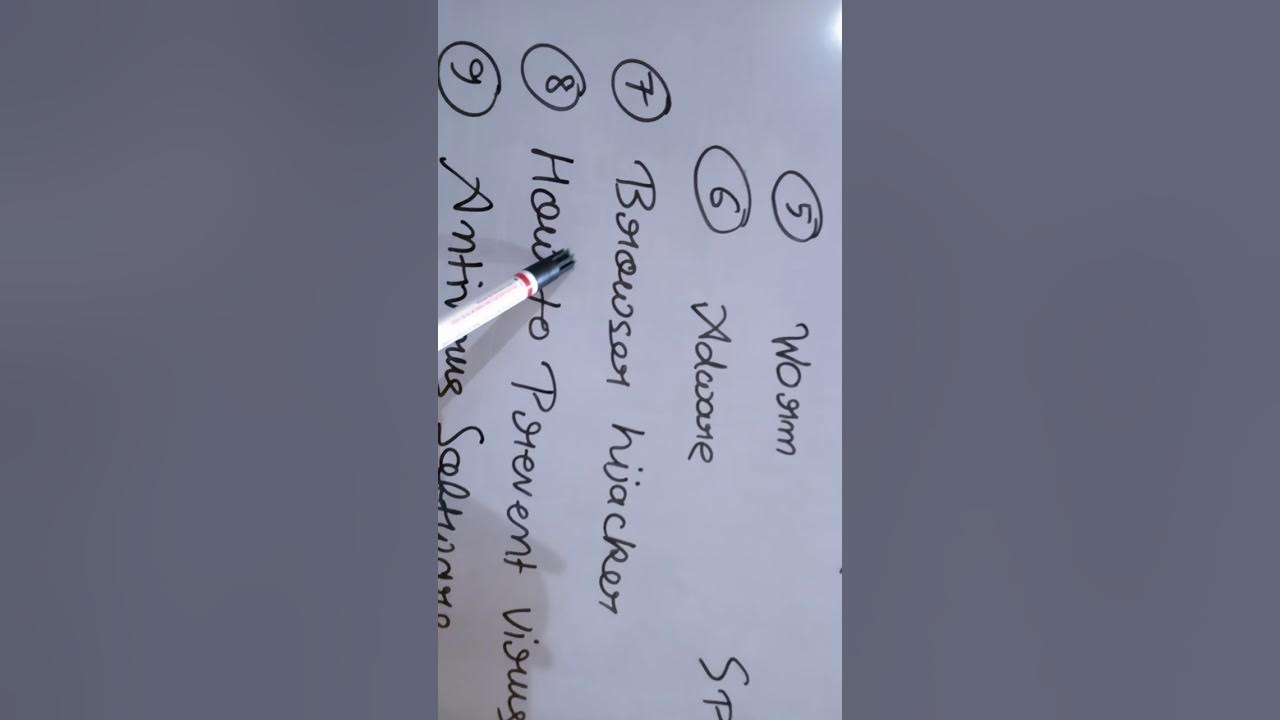 5 Worm
6 Adware SP
7 Browser hijacker
8 How to Prevent Virus
9 Antivirus Software